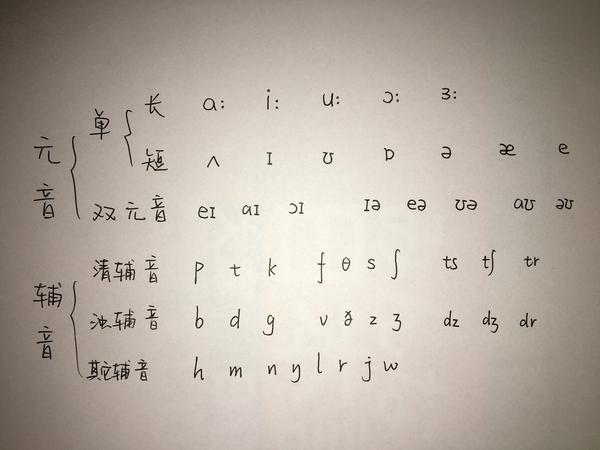 元音
单
长 ɑ: i: u: ɔ: ɜ:
短 ʌ ɪ ʊ ɒ ə æ e
双元音 eɪ aɪ ɔɪ ɪə eə ʊə aʊ əʊ
辅音
清辅音 p t k f θ s ʃ ts tʃ tr
浊辅音 b d g v ð z ʒ dz dʒ dr
其它辅音 h m n ŋ l r j w